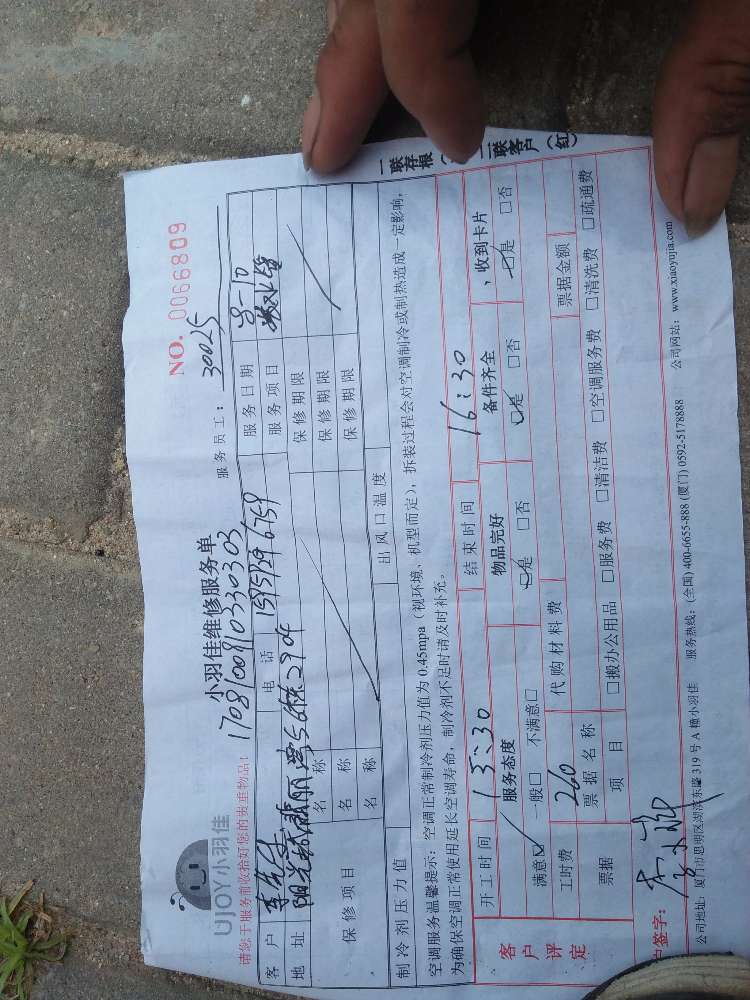 UJOY小羽佳
小羽佳维修服务单
NO. 0066809
请您于服务前收拾好您的贵重物品!
1708100810330303
服务员工: 30025
客户
电话 15959296759
服务日期 8-10
地址
服务项目
保修项目
名称
保修期限
名称
保修期限
名称
保修期限
制冷剂压力值
出风口温度
空调服务温馨提示: 空调正常制冷剂压力值为0.45mpa(视环境、机型而定), 拆装过程会对空调制冷或制热造成一定影响,
为确保空调正常使用延长空调寿命, 制冷剂不足时请及时补充。
一联存根
二联客户(红)
客户评定
开工时间 15:30
结束时间 16:30
服务态度
物品完好
备件齐全
、收到卡片
满意☑ 一般□ 不满意□
☑是 □否
☑是 □否
☑是 □否
工时费 260
代购材料费
票据金额
票据
票据名称
项目
□搬办公用品 □服务费 □清洁费 □空调服务费 □清洗费 □疏通费
户签字:
公司地址: 厦门市思明区湖滨东路319号A幢小羽佳 服务热线: (全国) 400-6655-888 (厦门) 0592-5178888 公司网站: www.xiaoyujia.com